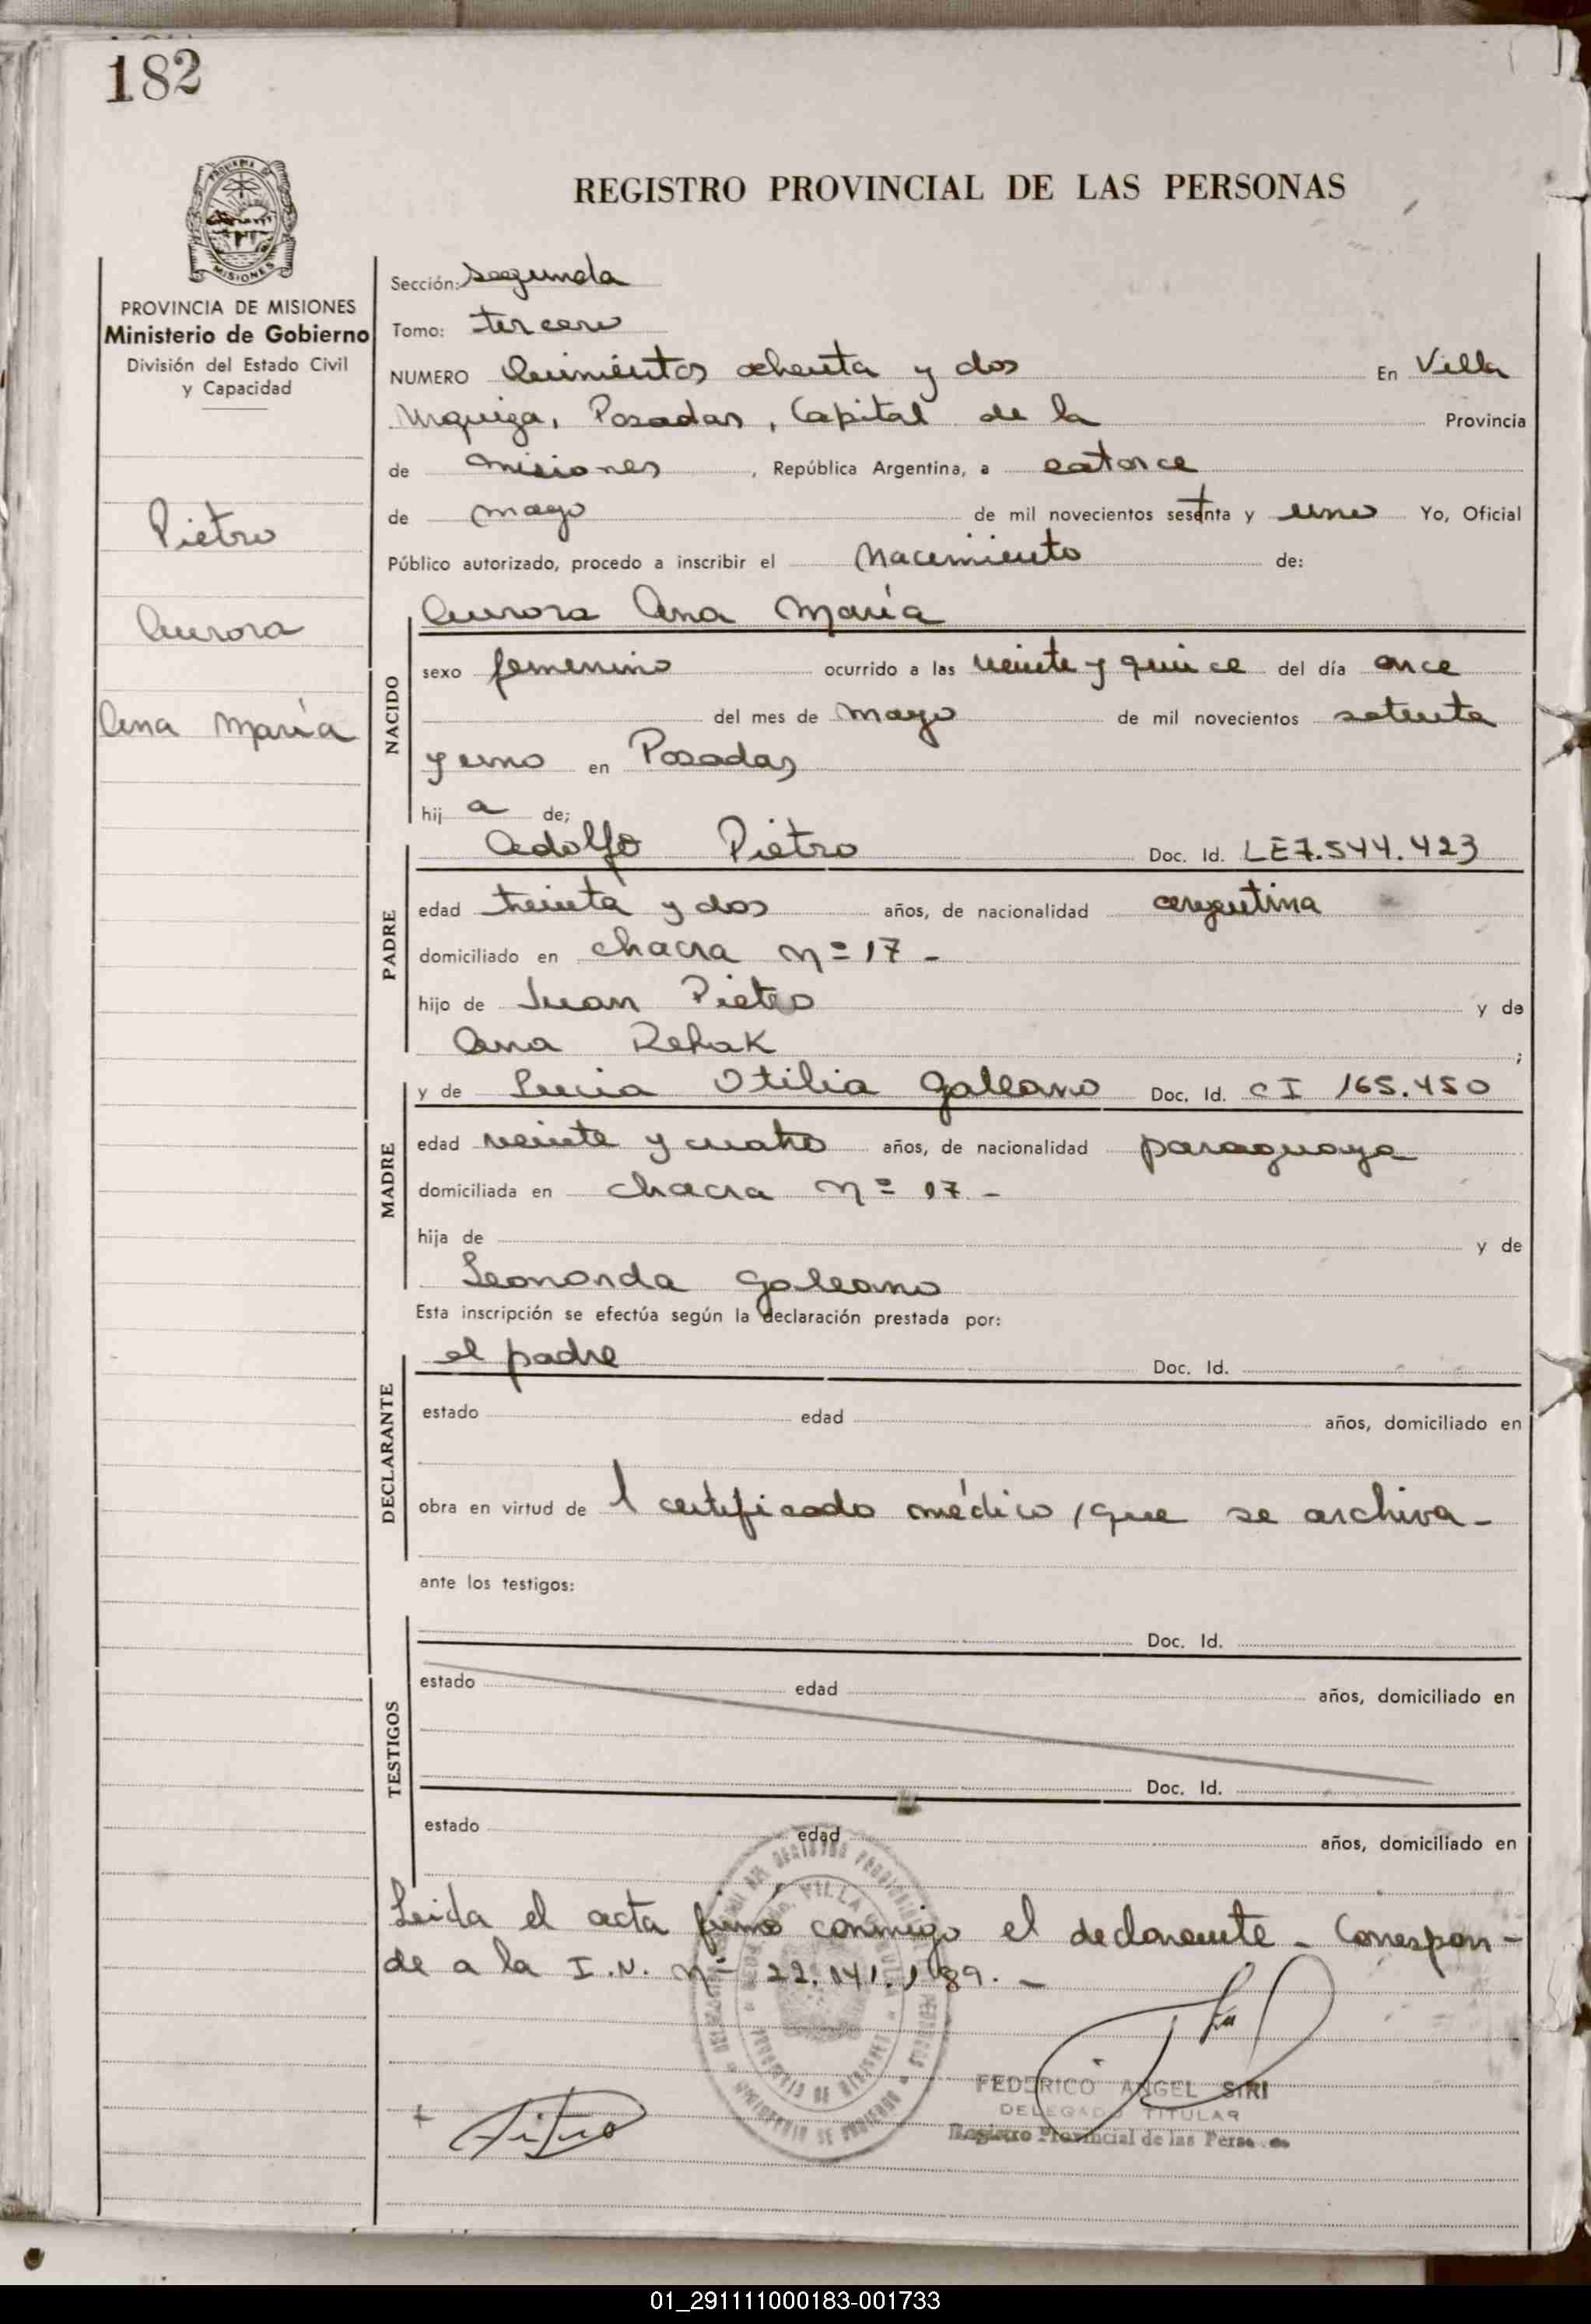 182
PROVINCIA DE MISIONES
Ministerio de Gobierno
División del Estado Civil
y Capacidad
Pietro
Aurora
Ana María
REGISTRO PROVINCIAL DE LAS PERSONAS
Sección: segunda
Tomo: tercero
NUMERO Quinientos ochenta y dos En Villa
Urquiza, Posadas, Capital de la Provincia
de misiones, República Argentina, a catorce
de mayo de mil novecientos setenta y uno Yo, Oficial
Público autorizado, procedo a inscribir el Nacimiento de:
Aurora Ana María
NACIDO
sexo femenino ocurrido a las veinte y quince del día once
del mes de mayo de mil novecientos setenta
y uno en Posadas
hij a de;
PADRE
Adolfo Pietro Doc. Id. LE 7.544.423
edad treinta y dos años, de nacionalidad argentina
domiciliado en chacra nº 17 -
hijo de Juan Pietro y de
Ana Rehak ;
MADRE
y de Lucia Otilia Galeano Doc. Id. CI 165.450
edad veinte y cuatro años, de nacionalidad paraguaya
domiciliada en chacra nº 17 -
hija de y de
Leonarda Galeano
Esta inscripción se efectúa según la declaración prestada por:
DECLARANTE
el padre Doc. Id.
estado edad años, domiciliado en
obra en virtud de 1 certificado médico, que se archiva -
ante los testigos:
TESTIGOS
Doc. Id.
estado edad años, domiciliado en
Doc. Id.
estado edad años, domiciliado en
Leida el acta firmó conmigo el declarante - Correspon-
de a la I.N. nº 22.141.189. -
FEDERICO ANGEL SIRI
DELEGADO TITULAR
Registro Provincial de las Personas
01_291111000183-001733